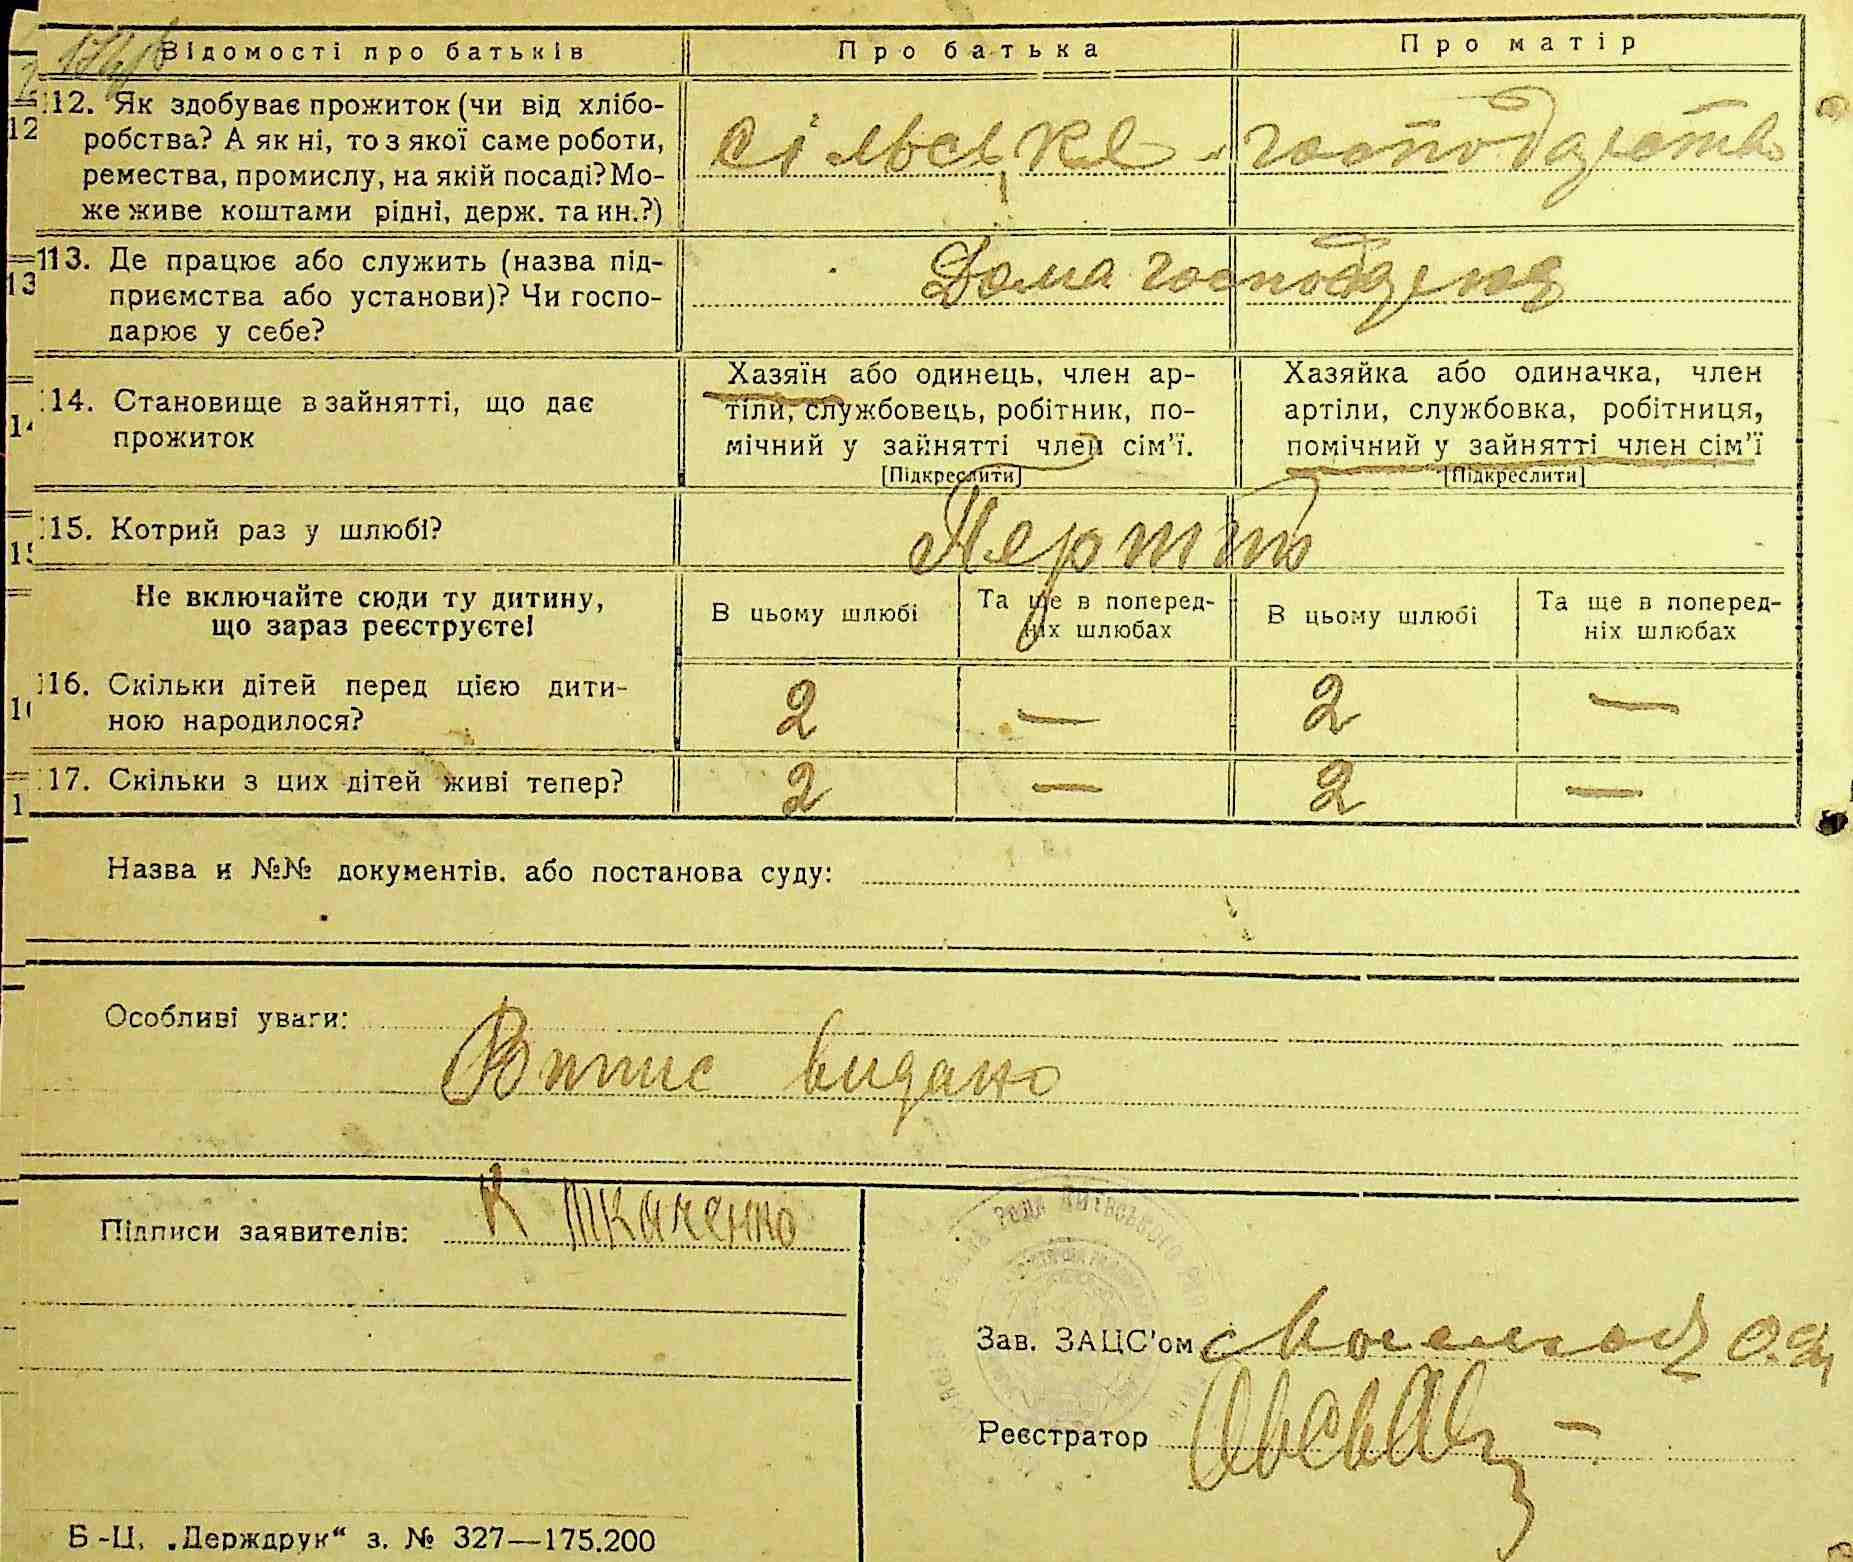 Відомості про батьків
Про батька
Про матір
12. Як здобуває прожиток (чи від хлібо-
робства? А як ні, то з якої саме роботи,
ремества, промислу, на якій посаді? Мо-
же живе коштами рідні, держ. та ин.?)
сільське господарство
13. Де працює або служить (назва під-
приємства або установи)? Чи госпо-
дарює у себе?
Дома
14. Становище в зайнятті, що дає
прожиток
Хазяїн або одинець, член ар-
тіли, службовець, робітник, по-
мічний у зайнятті член сім'ї.
[Підкреслити]
Хазяйка або одиначка, член
артіли, службовка, робітниця,
помічний у зайнятті член сім'ї
[Підкреслити]
15. Котрий раз у шлюбі?
Не включайте сюди ту дитину,
що зараз реєструєте!
В цьому шлюбі
Та ще в поперед-
ніх шлюбах
В цьому шлюбі
Та ще в поперед-
ніх шлюбах
16. Скільки дітей перед цією дити-
ною народилося?
2 — 2 —
17. Скільки з цих дітей живі тепер?
2 — 2 —
Назва и №№ документів. або постанова суду:
Особливі уваги:
Витис видано
Підписи заявителів: К Ткаченко
Зав. ЗАЦС'ом
Реєстратор
Б-Ц. „Держдрук“ з. № 327—175.200